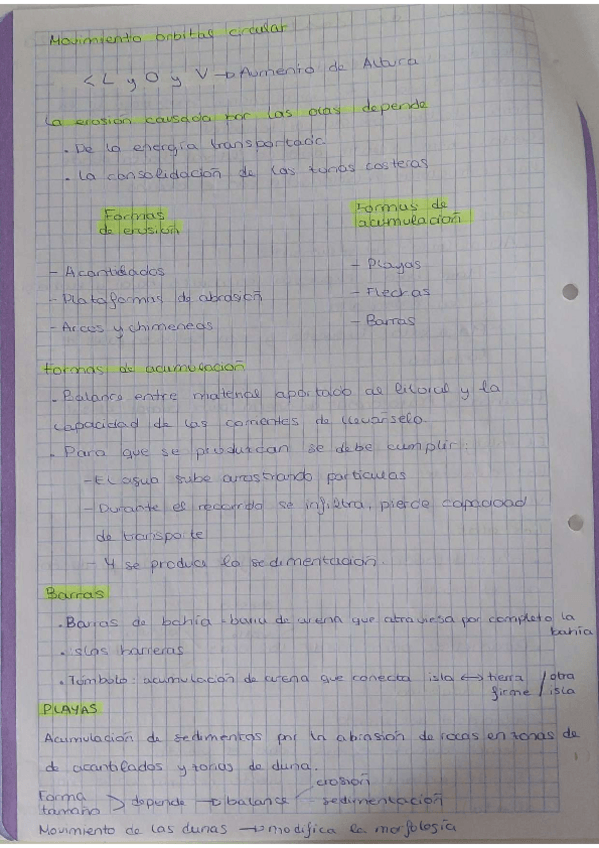 Movimiento orbitas circular
< L y O y V → Aumento de Altura
La erosión causada por las olas depende
· De la energía transportadc.
· La consolidación de las zonas costeras
Formas
de erosión
Formas de
acumulación
- Acantilados
- Playas
- Plataformas de abrasión
- Flechas
- Arcos y chimeneas
- Barras
Formas de acumulación
· Balance entre material aportado al litoral y la
capacidad de las corrientes de llevárselo.
· Para que se produzcan se debe cumplir:
- El agua sube arrastrando partículas
- Durante el recorrido se infiltra, pierde capacidad
de transporte
- Y se produce la sedimentación.
Barras
· Barras de bahía · barra de arena que atraviesa por completo la
bahía
· Islas barreras
· Tómbolo: acumulación de arena que conecta isla ↔ tierra / otra
firme / isla
PLAYAS
Acumulación de sedimentos por la abrasión de rocas en zonas de
de acantilados y zonas de duna.
Forma
tamaño > depende → balance < erosión
sedimentación
Movimiento de las dunas → modifica la morfología